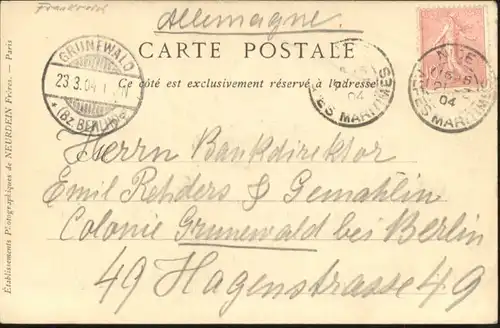 Frankreich
Allemagne.
CARTE POSTALE
Ce côté est exclusivement réservé à l'adresse
GRUNEWALD
23.3.04
* (Bz. BERLIN) *
NICE
04
ALPES MARITIMES
04
ALPES MARITIMES
Herrn Bankdirektor
Emil Rehders & Gemahlin
Colonie Grunewald bei Berlin
49 Hagenstrasse 49
Établissements Photographiques de NEURDEIN Frères. — Paris